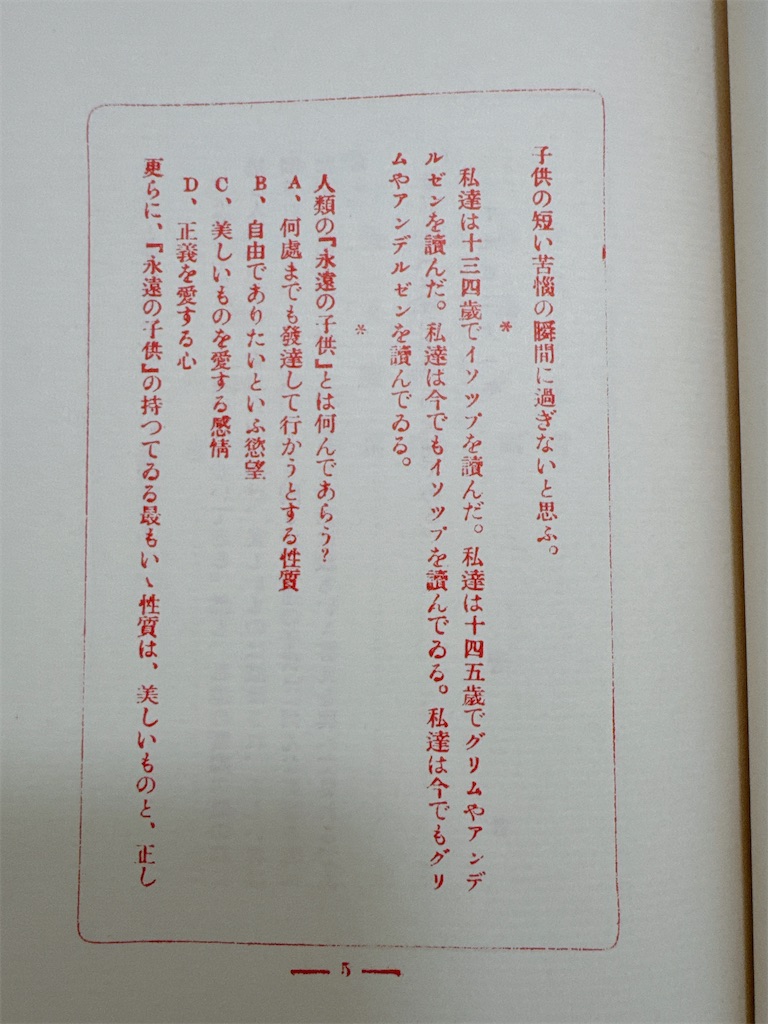 子供の短い苦惱の瞬間に過ぎないと思ふ。
*
私達は十三四歲でイソツプを讀んだ。私達は十四五歲でグリムやアンデ
ルゼンを讀んだ。私達は今でもイソツプを讀んでゐる。私達は今でもグリ
ムやアンデルゼンを讀んでゐる。
*
人類の『永遠の子供』とは何んであらう?
A、何處までも發達して行かうとする性質
B、自由でありたいといふ慾望
C、美しいものを愛する感情
D、正義を愛する心
更らに、『永遠の子供』の持つてゐる最もいゝ性質は、美しいものと、正し
5